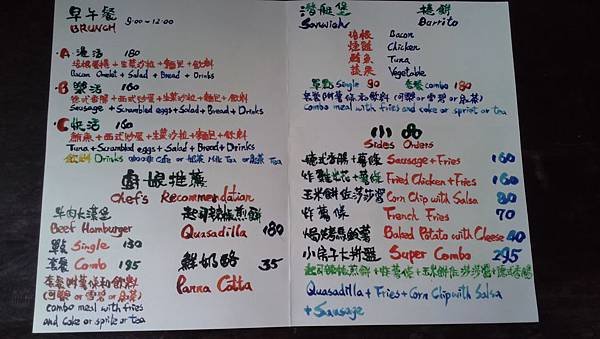 早午餐 9:00~12:00
BRUNCH
A 漫活 180
培根蛋捲+生菜沙拉+麵包+飲料
Bacon Omelet + Salad + Bread + Drinks
B 樂活 160
德式香腸+西式炒蛋+生菜沙拉+麵包+飲料
Sausage + Scrambled eggs + Salad + Bread + Drinks
C 快活 160
鮪魚+西式炒蛋+生菜沙拉+麵包+飲料
Tuna + Scrambled eggs + Salad + Bread + Drinks
飲料 Drinks Cafe or 奶茶 Milk Tea or 紅茶 Tea
廚娘推薦
Chef's Recommendation
牛肉大漢堡
Beef Hamburger
單點 Single 130
套餐 Combo 195
套餐附薯條和飲料
(可樂 or 雪碧 or 紅茶)
combo meal with fries
and coke or sprite or tea
起司辣椒煎餅
Quasadilla 180
鮮奶酪 35
Panna Cotta
潛艇堡 捲餅
Sanwish Barrito
培根 Bacon
燻雞 Chicken
鮪魚 Tuna
蔬菜 Vegetable
單點 Single 90 套餐 combo 180
套餐附薯條和飲料 (可樂 or 雪碧 or 紅茶)
combo meal with fries and coke or sprite or tea
小品
Sides Orders
德式香腸+薯條 Sausage + Fries 160
炸雞+薯條 Fried Chicken + Fries 160
玉米餅佐莎莎醬 Corn Chip with Salsa 80
炸薯條 French Fries 70
焗烤馬鈴薯 Baked Potato with Cheese 40
小房子大拼盤 Super Combo 295
起司辣椒煎餅+炸薯條+玉米餅佐莎莎醬+德式香腸
Quasadilla + Fries + Corn Chip with Salsa
+ Sausage